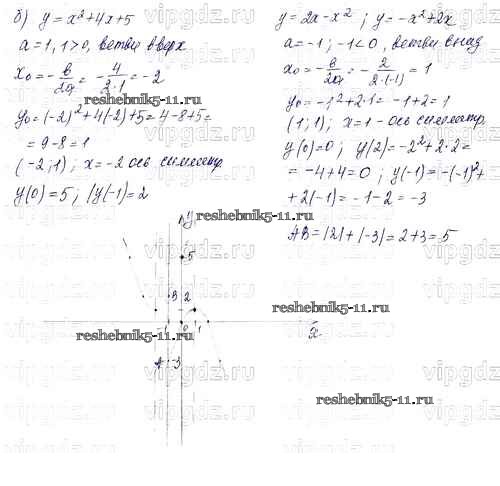 б) y = x²+4x+5
a=1, 1>0, ветви вверх
x₀ = -в/2a = -4/2·1 = -2
y₀ = (-2)²+4(-2)+5 = 4-8+5 =
= 9-8 = 1
(-2; 1); x=-2 ось симметр.
y(0) = 5; y(-1) = 2
y = 2x - x²; y = -x²+2x
a = -1; -1<0, ветви вниз
x₀ = -в/2a = -2/2·(-1) = 1
y₀ = -1²+2·1 = -1+2 = 1
(1; 1); x=1 - ось симметр.
y(0)=0; y(2) = -2²+2·2 =
= -4+4 = 0; y(-1) = -(-1)²+
+2(-1) = -1-2 = -3
AB = |2|+|-3| = 2+3 = 5
y
5
B 2
-1 0 1
x
A -3
reshebnik5-11.ru
reshebnik5-11.ru
reshebnik5-11.ru
reshebnik5-11.ru
reshebnik5-11.ru
vipgdz.ru